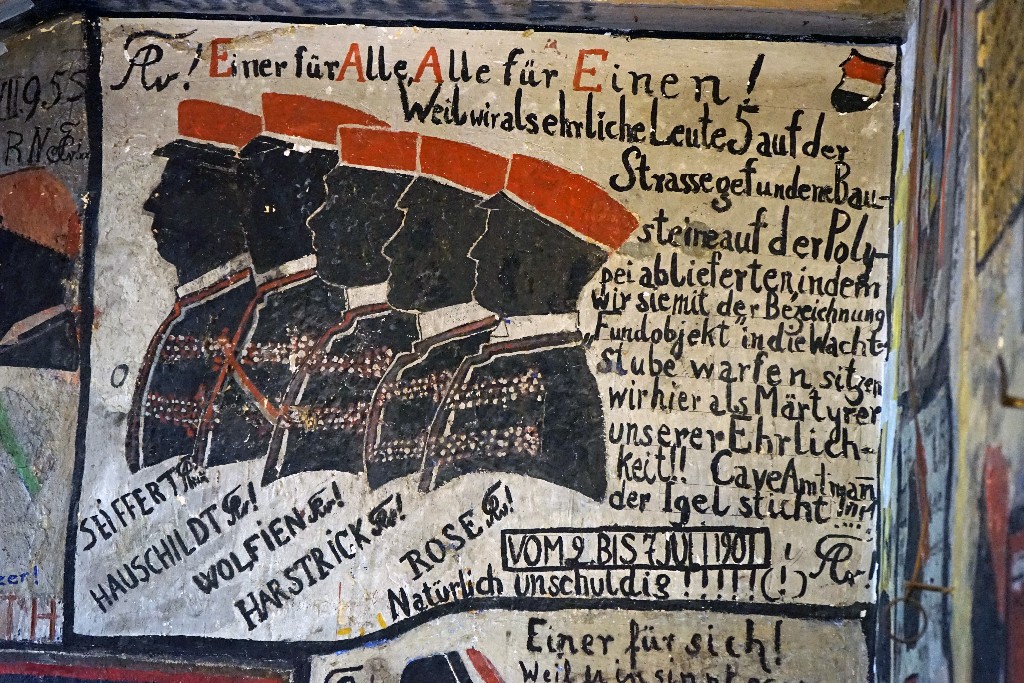 Einer für Alle, Alle für Einen!
Weil wir als ehrliche Leute 5 auf der
Strasse gefundene Bau-
steine auf der Poly-
pei ablieferten, indem
wir sie mit der Bezeichnung
„Fundobjekt" in die Wacht-
stube warfen, sitzen
wir hier als Märtyrer
unserer Ehrlich-
keit!! Cave Amtmann
der Igel sticht!!!
SEIFFERT
HAUSCHILDT
WOLFIEN
HARSTRICK
ROSE
VOM 2. BIS 7. JULI 1901 !
Natürlich unschuldig !!!!!(!)
Einer für sich!
Weil
VII 1955
RN
zer!
TH